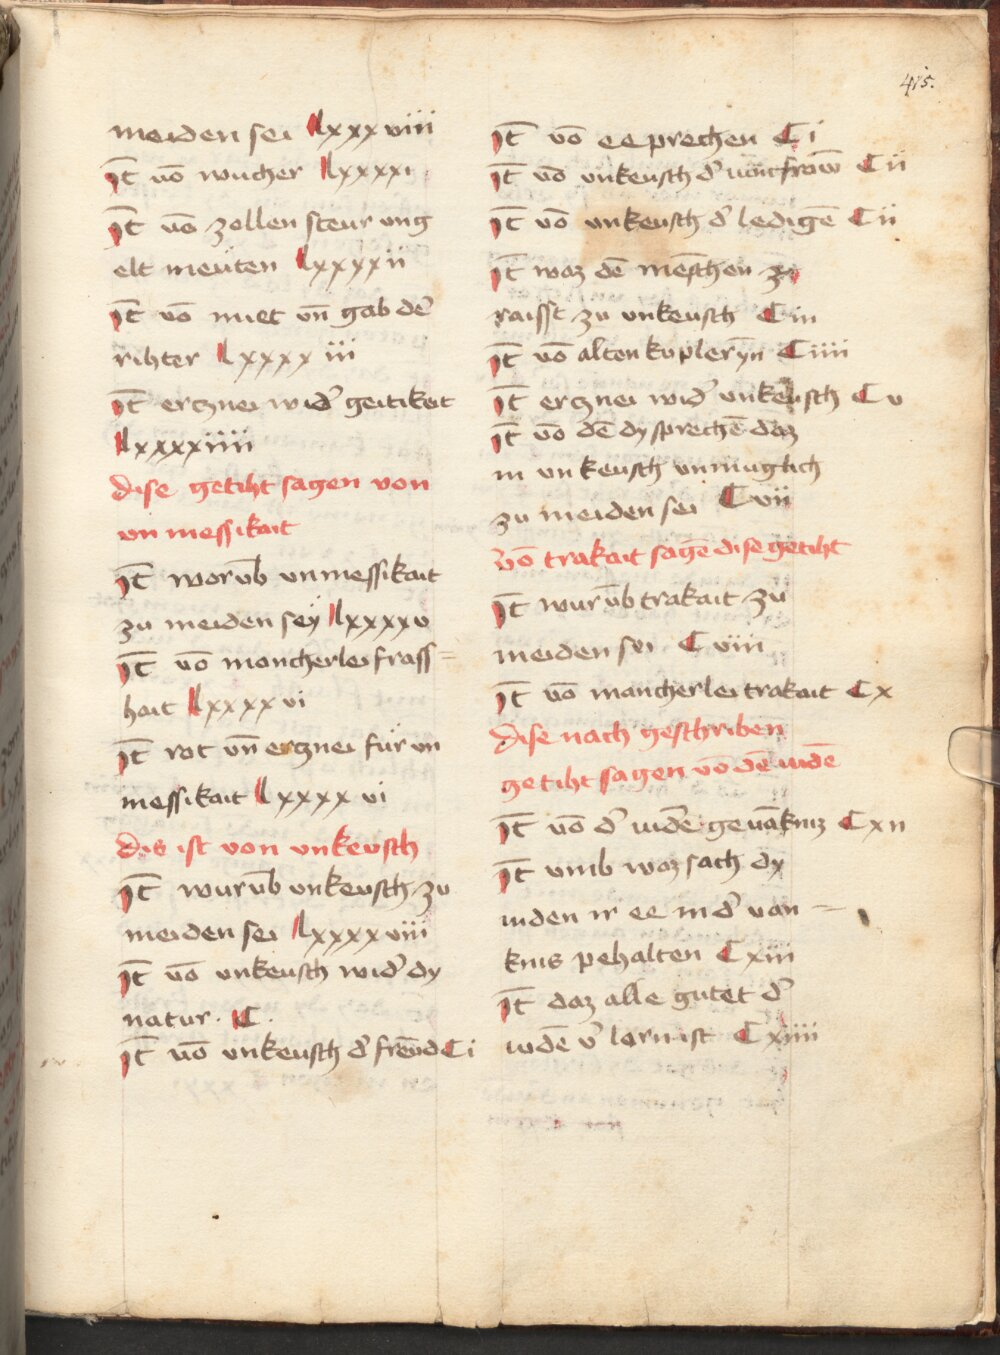 415.
meiden sei lxxxviiii
It̄ vō wucher lxxxxi
It̄ vō zollen steur ung
elt meüten lxxxxii
It̄ vō miet un̄ gab de᷑
rihter lxxxxiii
It̄ erznei wid᷑ geitikeit
lxxxxiiii
dise getiht sagen von
vnmessikait
It̄ worūb vnmessikait
zu meiden seÿ lxxxxv
It̄ vō moncherlei frass=
hait lxxxxvi
It̄ rot un̄ erznei für vn
messikait lxxxxvi
dis ist von vnkeusch
It̄ wurūb vnkeusch zu
meiden sei lxxxxviii
It̄ vō vnkeusch wid᷑ dy
natur. C.
It̄ vō vnkeusch d᷑ frēvd Ci
It̄ vō ee prechen Ci
It̄ vō vnkeusch d᷑ iūncfrow̄ Cii
It̄ vō vnkeusch d᷑ ledigē Cii
It̄ waz dē mēschen zu
raisst zu vnkeusch Ciii
It̄ vō alten kupleryn̄ Ciiii
It̄ erznei wid᷑ vnkeusch Cv
It̄ vō dē dy sprechē daz
in vnkeusch vnmuglich
zu meiden sei Cvii
vō trakait sagē dise getiht
It̄ wurūb trakait zu
meiden sei Cviii
It̄ vō mancherlei trakait Cx
dise nach geschriben
getiht sagen vō dē iudē
It̄ vō d᷑ iudē gevāknuz Cxii
It̄ vmb waz sach dy
iuden ir ee in d᷑ van=
knis pehalten Cxiii
It̄ daz alle gutet d᷑
iudē v᷑lorn ist Cxiiii